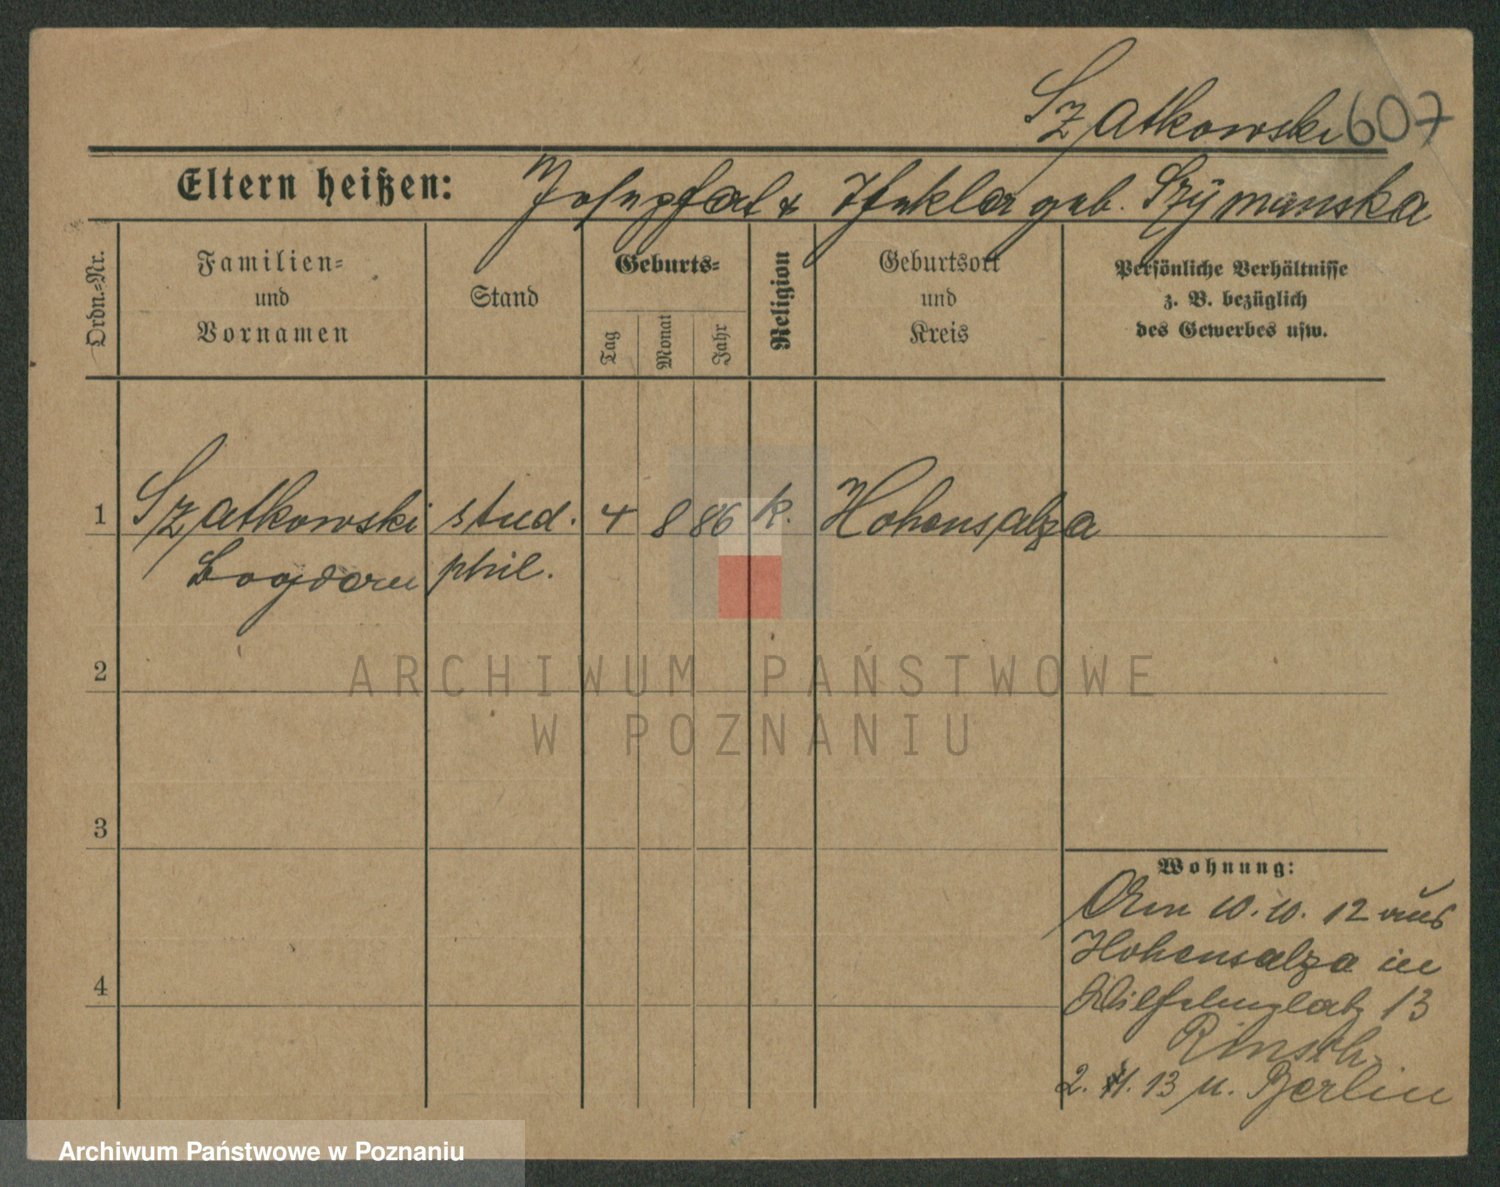 Szatkowski 607
Eltern heißen: Josephat & Thekla geb. Szymanska
Ordn.-Nr.
Familien-
und
Vornamen
Stand
Geburts-
Tag
Monat
Jahr
Religion
Geburtsort
und
Kreis
Persönliche Verhältnisse
z. B. bezüglich
des Gewerbes usw.
1 Szatkowski stud. 4 8 86 k. Hohensalza
Bogdan phil.
2
3
4
Wohnung:
Am 10.10.12 aus
Hohensalza in
Wilhelmplatz 13
2. 13 n. Berlin
ARCHIWUM PAŃSTWOWE
W POZNANIU
Archiwum Państwowe w Poznaniu